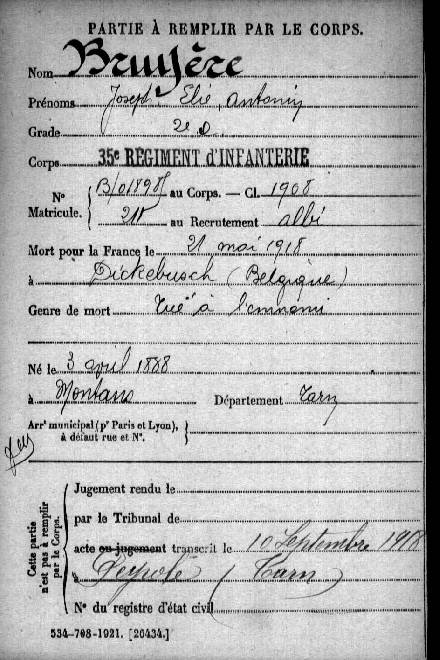 PARTIE À REMPLIR PAR LE CORPS.
Nom Bruyère
Prénoms Joseph Elie Antonin
Grade 2e
Corps 35e RÉGIMENT d'INFANTERIE
No Matricule. B/01898 au Corps. — Cl. 1908
au Recrutement albi
Mort pour la France le 21 mai 1918
à Dickebusch (Belgique)
Genre de mort Tué à l'ennemi
Né le 3 avril 1888
à Montans Département Tarn
Arrt municipal (pr Paris et Lyon),
à défaut rue et No.
Cette partie n'est pas à remplir par le Corps.
Jugement rendu le
par le Tribunal de
acte ou jugement transcrit le 10 Septembre 1918
à (Tarn)
No du registre d'état civil
534-708-1921. [26434.]